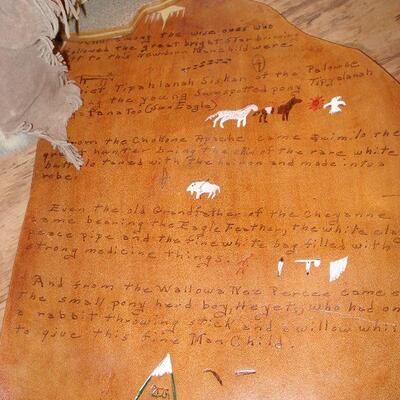 among the wise ones who
followed the great bright star burning
to this newborn Manchild were
Chief Tipahlanah Siskan of the Palouse
the young Sunspotted pony Tipyalanah
(Sun Eagle)
From the Chokone Apache came Quimilo the
great hunter bring the skin of the rare white
buffalo taned with the hair on and made into a
robe.
Even the old Grandfather of the Cheyenne
came bearing the Eagle Feather, the white clay
peace pipe and the fine white bag filled with
strong medicine things.
And from the Wallowa Nez Percee came
The small pony herd boy, Heyets, who had on
a rabbit throwing stick and a willow whis
to give this fine Man Child.